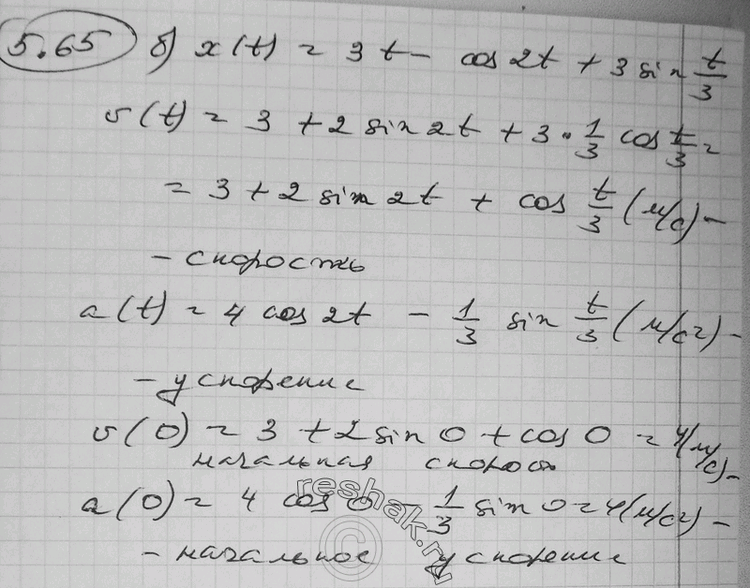 5.65 б) x(t) = 3t - cos 2t + 3 sin t/3
v(t) = 3 + 2 sin 2t + 3 · 1/3 cos t/3 =
= 3 + 2 sin 2t + cos t/3 (м/с) -
- скорость
a(t) = 4 cos 2t - 1/3 sin t/3 (м/с²) -
- ускорение
v(0) = 3 + 2 sin 0 + cos 0 = 4 (м/с) -
начальная скорость
a(0) = 4 cos 0 - 1/3 sin 0 = 4 (м/с²) -
- начальное ускорение
reshak.ru
©